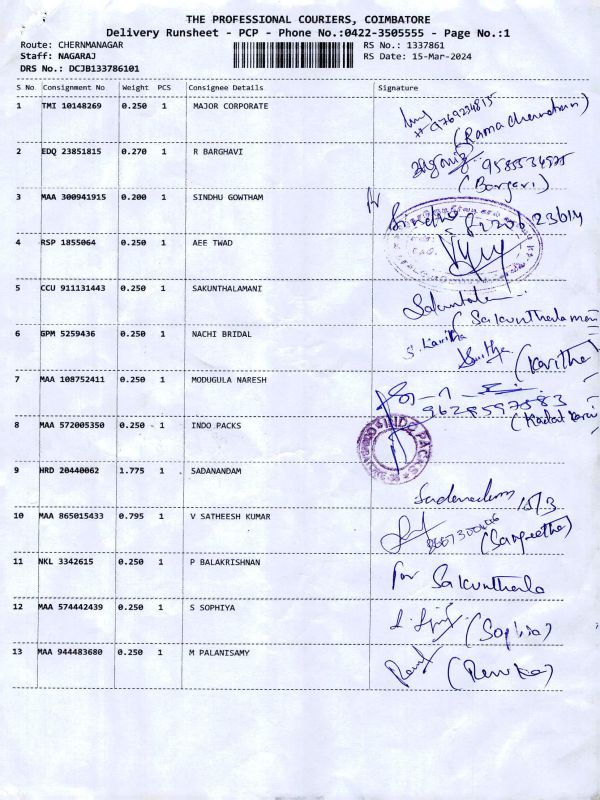 THE PROFESSIONAL COURIERS, COIMBATORE
Delivery Runsheet - PCP - Phone No.:0422-3505555 - Page No.:1
Route: CHERNMANAGAR RS No.: 1337861
Staff: NAGARAJ RS Date: 15-Mar-2024
DRS No.: DCJB133786101
S No Consignment No Weight PCS Consignee Details Signature
1 TMI 10148269 0.250 1 MAJOR CORPORATE
(Ramachandran)
2 EDQ 23851815 0.270 1 R BARGHAVI
(Bargavi)
3 MAA 300941915 0.200 1 SINDHU GOWTHAM
Sindhu
4 RSP 1855064 0.250 1 AEE TWAD
5 CCU 911131443 0.250 1 SAKUNTHALAMANI
(Sakunthalamani
6 GPM 5259436 0.250 1 NACHI BRIDAL
S. Kavitha
(Kavitha)
7 MAA 108752411 0.250 1 MODUGULA NARESH
9628597583
8 MAA 572005350 0.250 - 1 INDO PACKS
INDO PACKS
9 HRD 20440062 1.775 1 SADANANDAM
Sadanandum 15/3
10 MAA 865015433 0.795 1 V SATHEESH KUMAR
(Sangeetha)
11 NKL 3342615 0.250 1 P BALAKRISHNAN
for Sakunthala
12 MAA 574442439 0.250 1 S SOPHIYA
(Sophia)
13 MAA 944483680 0.250 1 M PALANISAMY
(Renuka)